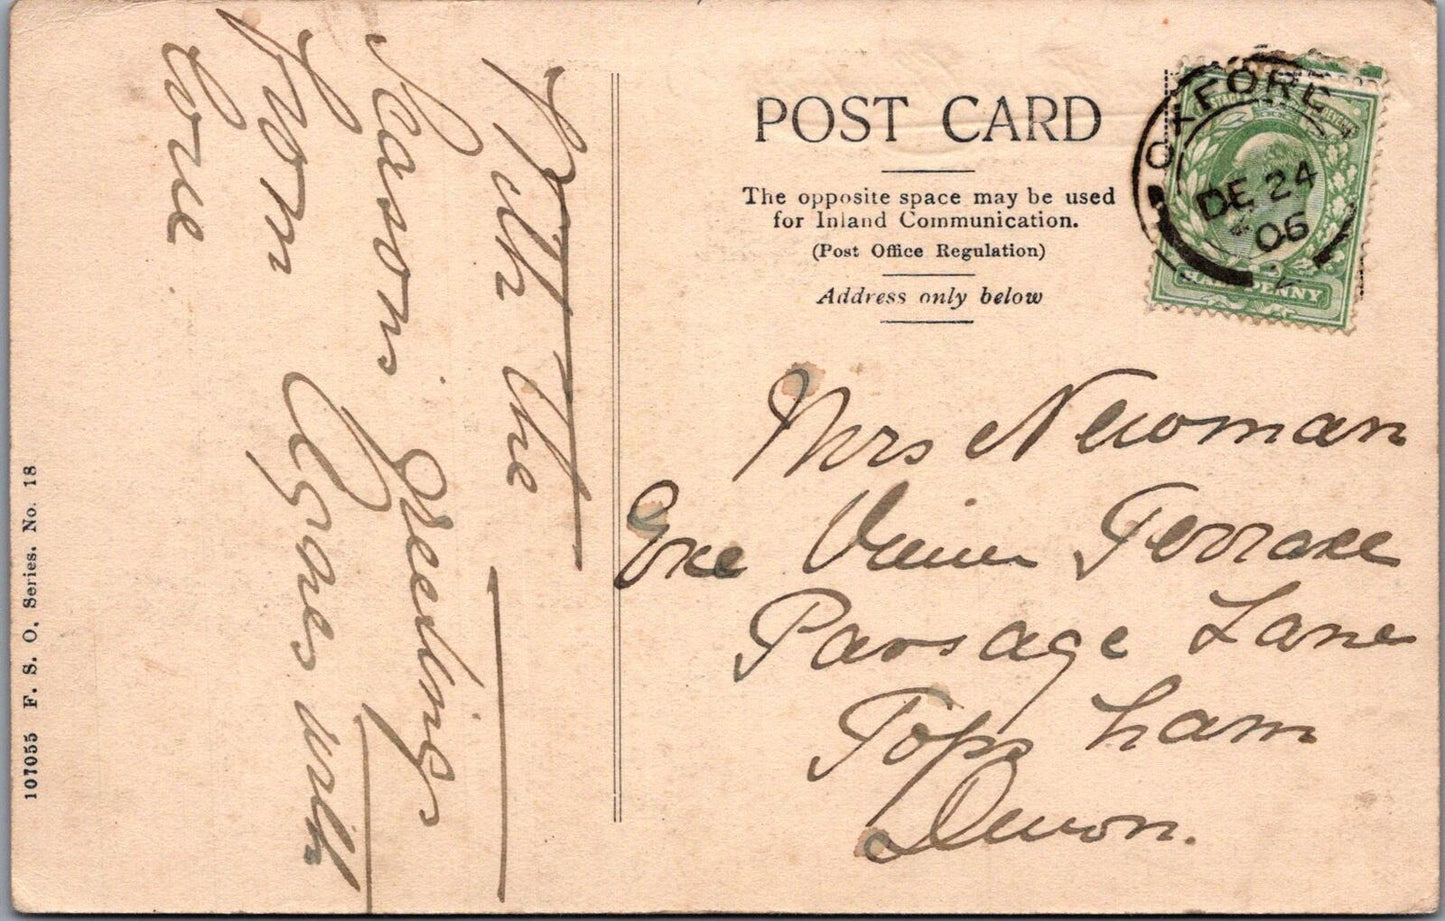 POST CARD
The opposite space may be used
for Inland Communication.
(Post Office Regulation)
Address only below
OXFORD
DE 24
06
2
HALFPENNY
Mrs Newman
Exe View Terrace
Passage Lane
Topsham
Devon.
With the
Seasons greetings
from Agnes with
love
107055 F. S. O. Series. No. 18